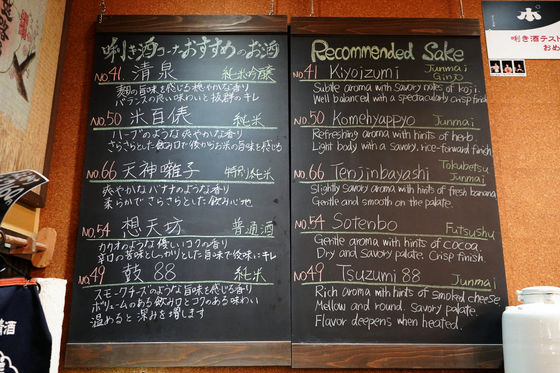 唎き酒コーナーおすすめのお酒
No.41. 清泉 純米吟醸
麹の旨味を感じる爽やかな香り
バランスの良い味わいと抜群のキレ
No.50 米百俵 純米
ハーブのような爽やかな香り
さらさらとした飲み口で後からお米の旨味を感じる
No.66 天神囃子 特別純米
爽やかなバナナのような香り
柔らかで さらさらとした飲み心地
No.54 想天坊 普通酒
カカオのような優しいコクの香り
辛口の苦味としっかりとした旨味で後味にキレ
No.49 鼓 88 純米
スモークチーズのような旨味を感じる香り
ボリュームのある飲み口とコクのある味わい
温めると 深みを増します
Recommended Sake
No.41 Kiyoizumi Junmai Ginjo
Subtle aroma with savory notes of koji.
Well balanced with a spectacularly crisp finish
No.50 Komehyappyo Junmai
Refreshing aroma with hints of herb.
Light body with a savory, rice-forward finish.
No.66 Tenjinbayashi Tokubetsu Junmai
Slightly savory aroma with hints of fresh banana
Gentle and smooth on the palate.
No.54 Sotenbo Futsushu
Gentle aroma with hints of cocoa.
Dry and savory palate. Crisp finish.
No.49 Tsuzumi 88 Junmai
Rich aroma with hints of smoked cheese.
Mellow and round. savory palate.
Flavor deepens when heated.
唎き酒テスト
おめ
酒